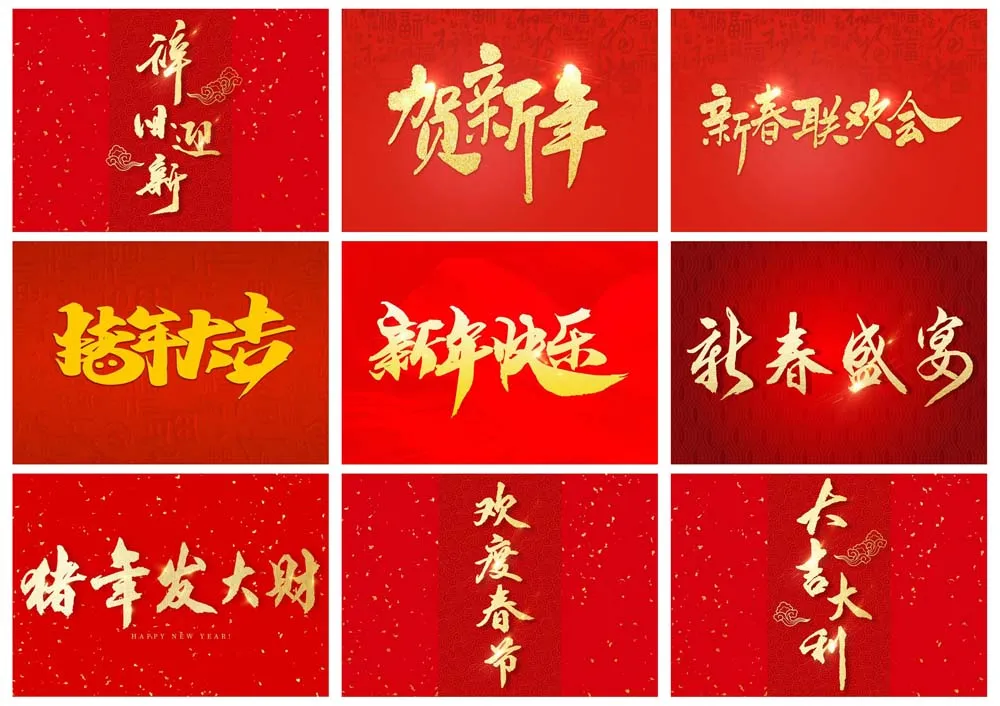 辞旧迎新
贺新年
新春联欢会
猪年大吉
新年快乐
新春盛宴
猪年发大财
HAPPY NEW YEAR!
欢度春节
大吉大利